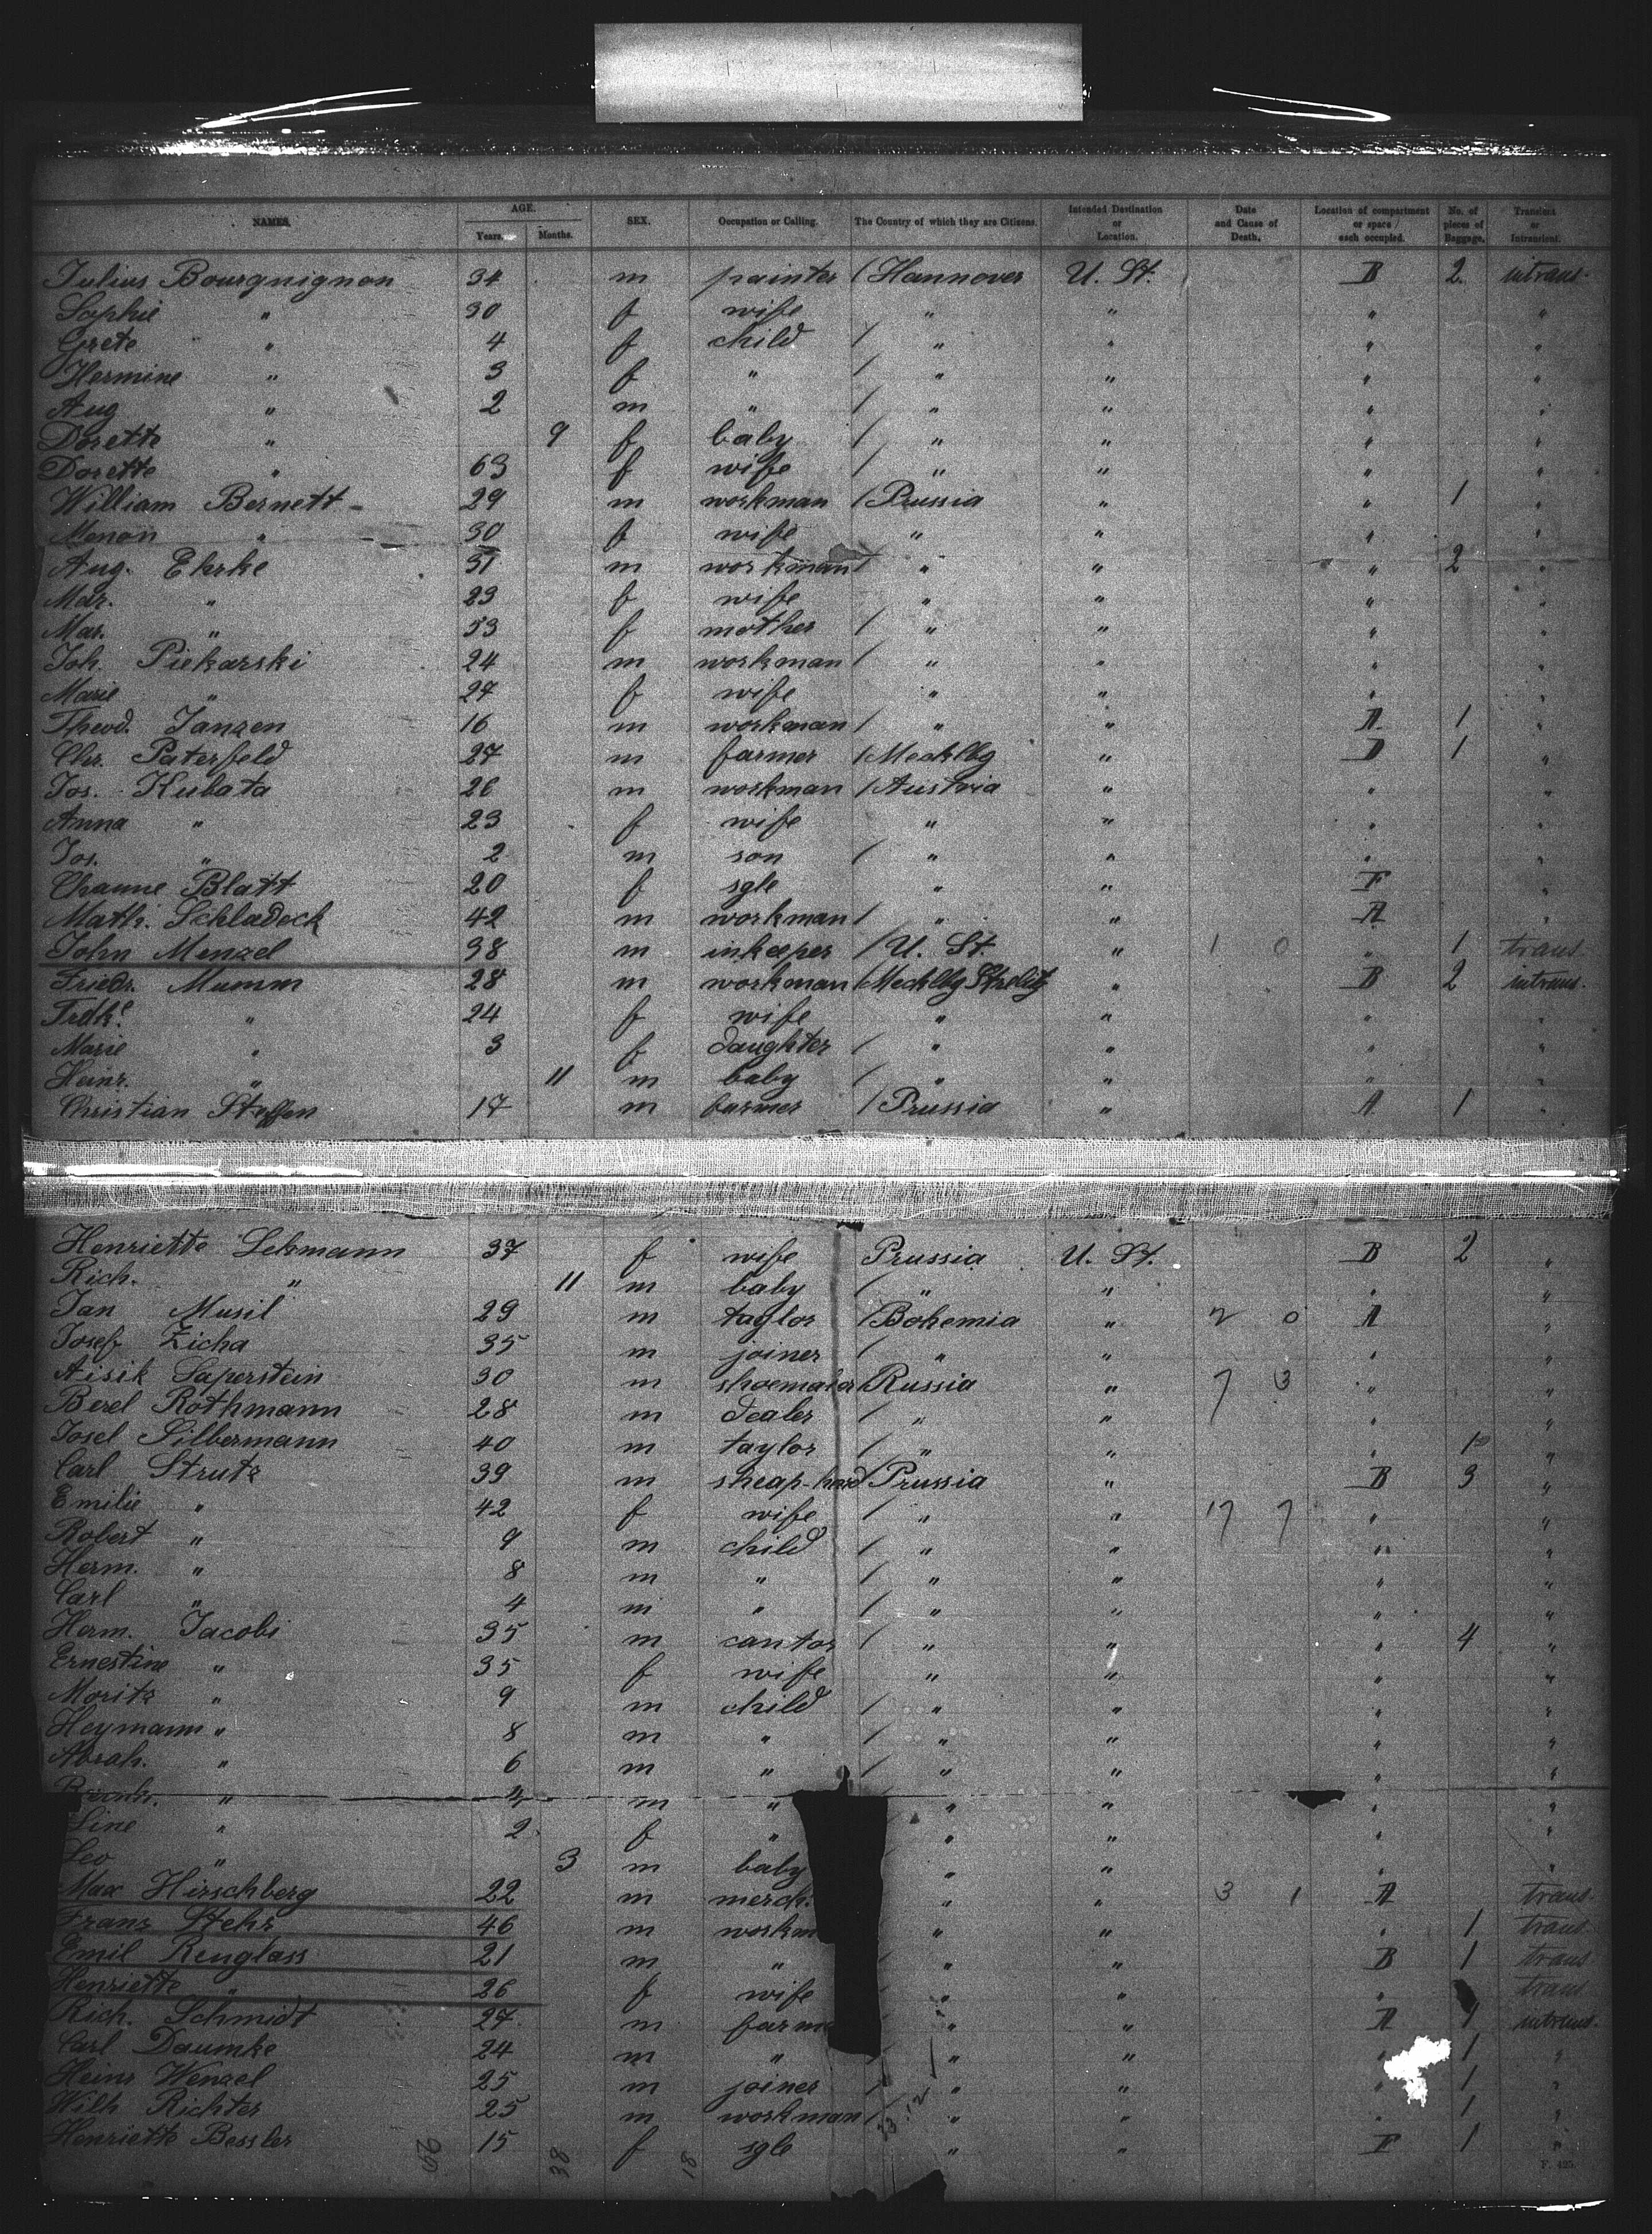 NAMES. AGE. Years. Months. SEX. Occupation or Calling. The Country of which they are Citizens. Intended Destination or Location. Date and Cause of Death. Location of compartment or space each occupied. No. of pieces of Baggage. Transient or Intransient.
Julius Bourguignon 34 m painter / Hannover U. St. B 2 intrans.
Sophie " 30 f wife " " " "
Grete " 4 f child / " " " "
Hermine " 3 f " / " " " "
Aug " 2 m " / " " " "
Dorette " 9 f baby / " " " "
Dorette " 63 f wife / " " " "
William Bernett 29 m workman / Prussia " " 1 "
Menon " 30 f wife " " " "
Aug. Ehrke 31 m workman / " " " 2 "
Mar. " 23 f wife " " " "
Mar. " 53 f mother / " " " "
Joh. Piekarski 24 m workman / " " " "
Marie " 27 f wife " " " "
Theod. Janzen 16 m workman / " " A 1 "
Chr. Paterfeld 27 m farmer / Mecklbg " B 1 "
Jos. Kubata 26 m workman / Austria " " "
Anna " 23 f wife " " " "
Jos. " 2 m son / " " " "
Channe Blatt 20 f sgle " " F "
Math. Schladeck 42 m workman / " " A "
John Menzel 38 m inkeeper / U. St. " 1 0 " 1 trans.
Friedr. Mumm 28 m workman / Mecklbg Strelitz " B 2 intrans.
Frdke " 24 f wife " " " "
Marie " 3 f daughter / " " " "
Heinr. " 11 m baby / " " " "
Christian Steffen 17 m farmer / Prussia " A 1 "
Henriette Lehmann 37 f wife Prussia U. St. B 2 "
Rich. " 11 m baby / " " " "
Jan Musil 29 m taylor / Bohemia " 2 0 A "
Josef Zicha 35 m joiner / " " " "
Aisik Saperstein 30 m shoemaker / Russia " 7 3 " "
Berel Rothmann 28 m dealer / " " " "
Josel Silbermann 40 m taylor / " " " 1 "
Carl Strutz 39 m sheap-herd / Prussia " B 3 "
Emilie " 42 f wife / " " 17 7 " "
Robert " 9 m child / " " " "
Herm. " 8 m " / " " " "
Carl " 4 m " / " " " "
Herm. Jacobi 35 m cantor / " " " 4 "
Ernestine " 35 f wife " " " "
Moritz " 9 m child / " " " "
Heymann " 8 m " / " " " "
Abrah. " 6 m " / " " " "
" 4 m " " " " "
Line " 2 f " " " " "
Leo " 3 m baby " " " "
Max Hirschberg 22 m merch. " " 3 1 A trans.
Franz Stehr 46 m workm / " " " 1 trans.
Emil Renglass 21 m " / " " B 1 trans
Henriette " 26 f wife " " " trans
Rich. Schmidt 27 m farm " " A 1 intrans.
Carl Daumke 24 m " / " " " 1 "
Heinr Wenzel 25 m joiner / " " " 1 "
Wilh Richter 25 m workman / " " " 1 "
Henriette Bessler 15 f sgle " " F 1 "
38 18
F. 425.